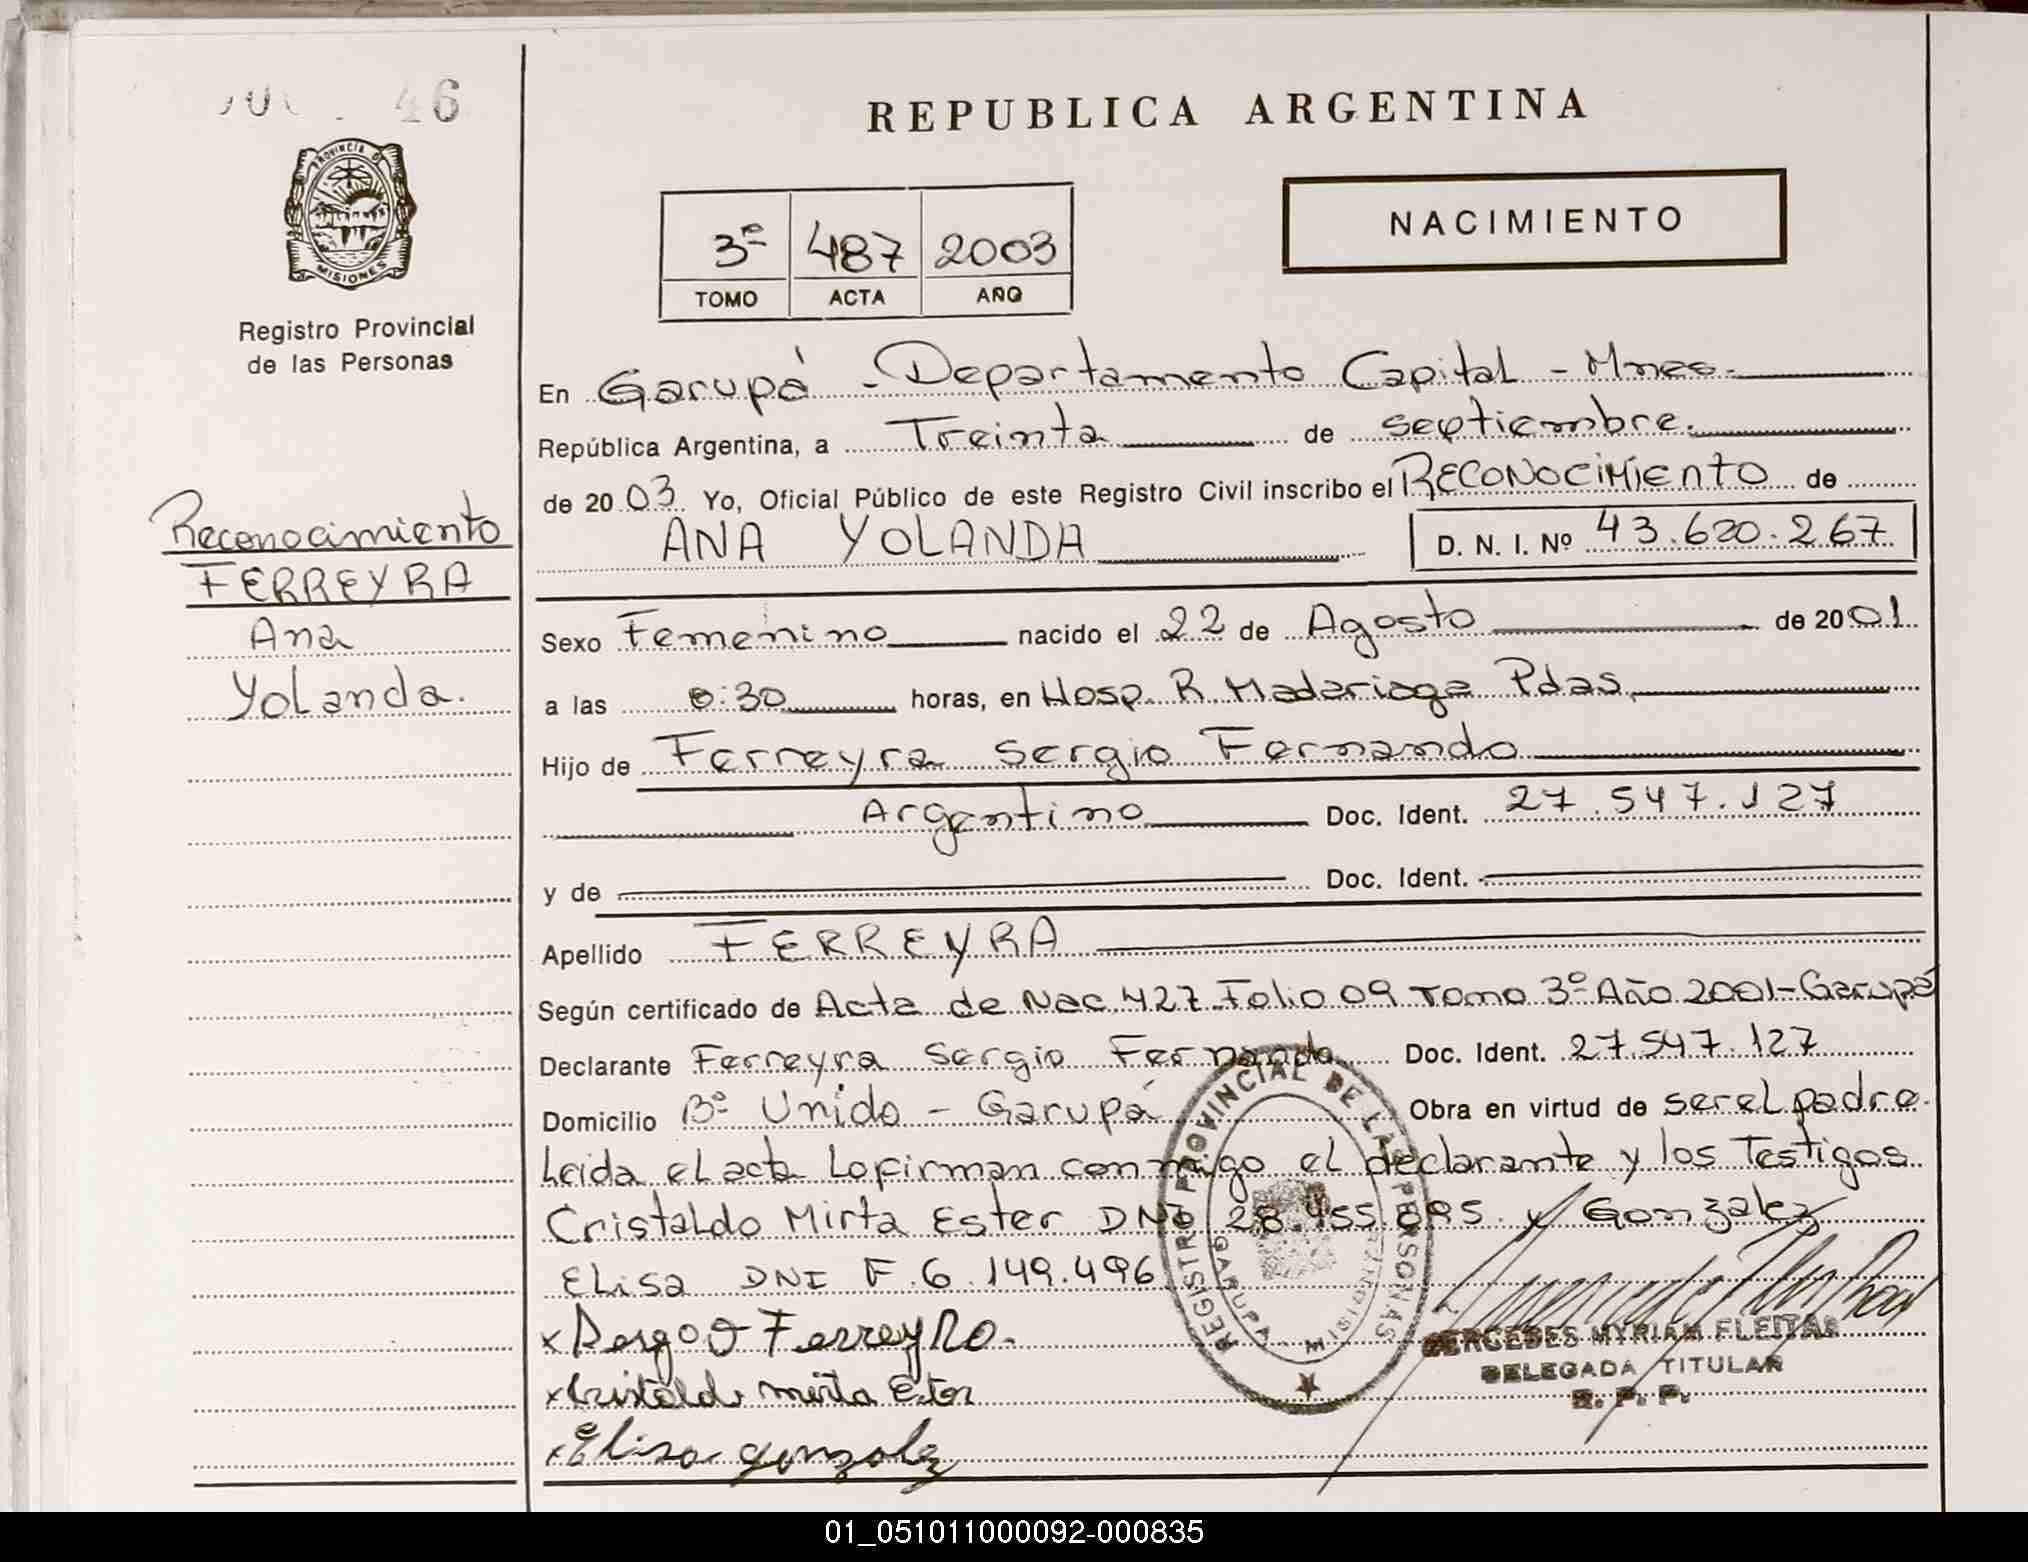 46
REPUBLICA ARGENTINA
PROVINCIA D
MISIONES
Registro Provincial
de las Personas
NACIMIENTO
3º 487 2003
TOMO ACTA AÑO
En Garupá - Departamento Capital - Mnes.
República Argentina, a Treinta de septiembre.
de 2003 Yo, Oficial Público de este Registro Civil inscribo el RECONOCIMIENTO de
ANA YOLANDA D. N. I. Nº 43.620.267
Reconocimiento
FERREYRA
Ana
Yolanda.
Sexo Femenino nacido el 22 de Agosto de 2001
a las 0:30 horas, en Hosp. R. Madariaga Pdas.
Hijo de Ferreyra Sergio Fernando
Argentino Doc. Ident. 27.547.127
y de Doc. Ident.
Apellido FERREYRA
Según certificado de Acta de Nac. 427 Folio 09 Tomo 3º Año 2001-Garupá
Declarante Ferreyra Sergio Fernando Doc. Ident. 27.547.127
Domicilio Bº Unido - Garupá Obra en virtud de ser el padre.
Leida el acta Lo firman conmigo el declarante y los Testigos
Cristaldo Mirta Ester DNI 28.455.895 y Gonzalez
ELisa DNI F.6.149.496
x Ferreyra.
x Cristaldo mirta Ester
x Elisa gonzalez
REGISTRO PROVINCIAL DE LAS PERSONAS
GARUPA
MISIONES
MERCEDES MYRIAM FLEITAS
DELEGADA TITULAR
R. P. P.
01_051011000092-000835